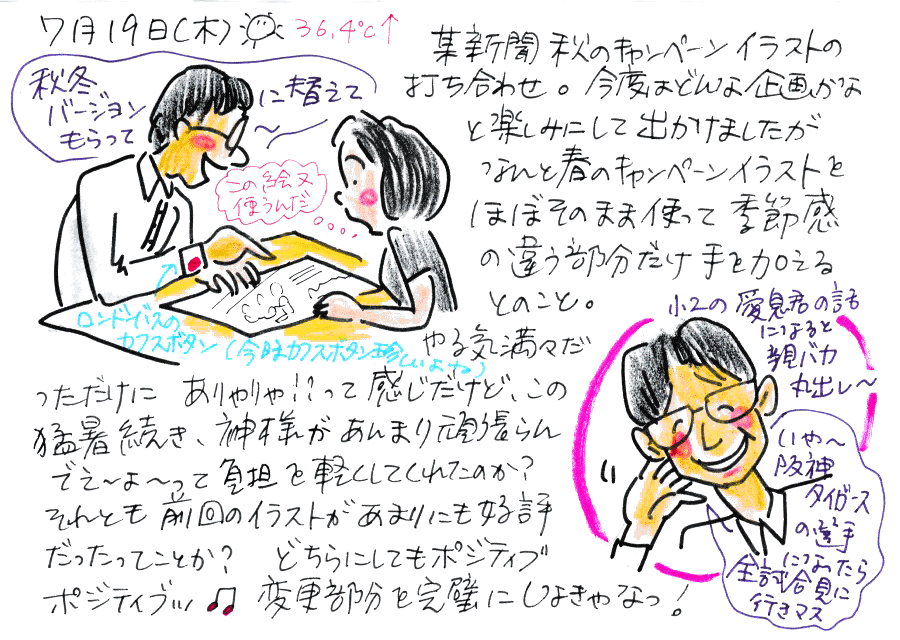 7月19日(木) 36.4℃↑
秋冬
バージョン
もらって
に替えて
〜
この絵又
使うんだ
ロンドンバスの
カフスボタン(今時カフスボタン珍しいよね)
某新聞 秋のキャンペーンイラストの
打ち合わせ。今度はどんな企画かな
と楽しみにして出かけましたが
なんと春のキャンペーンイラストを
ほぼそのまま使って季節感
の違う部分だけ手を加える
とのこと。
やる気満々だ
っただけに ありゃりゃ!!って感じだけど、この
猛暑続き、神様があんまり頑張らん
でえ〜よ〜って負担を軽くしてくれたのか?
それとも前回のイラストがあまりにも好評
だったってことか? どちらにしてもポジティブ
ポジティブッ♫ 変更部分を完璧にしょきゃなっ!
小2の愛息君の話
になると
親バカ
丸出し〜
いや〜
阪神
タイガース
の選手
になったら
全試合見に
行きマス